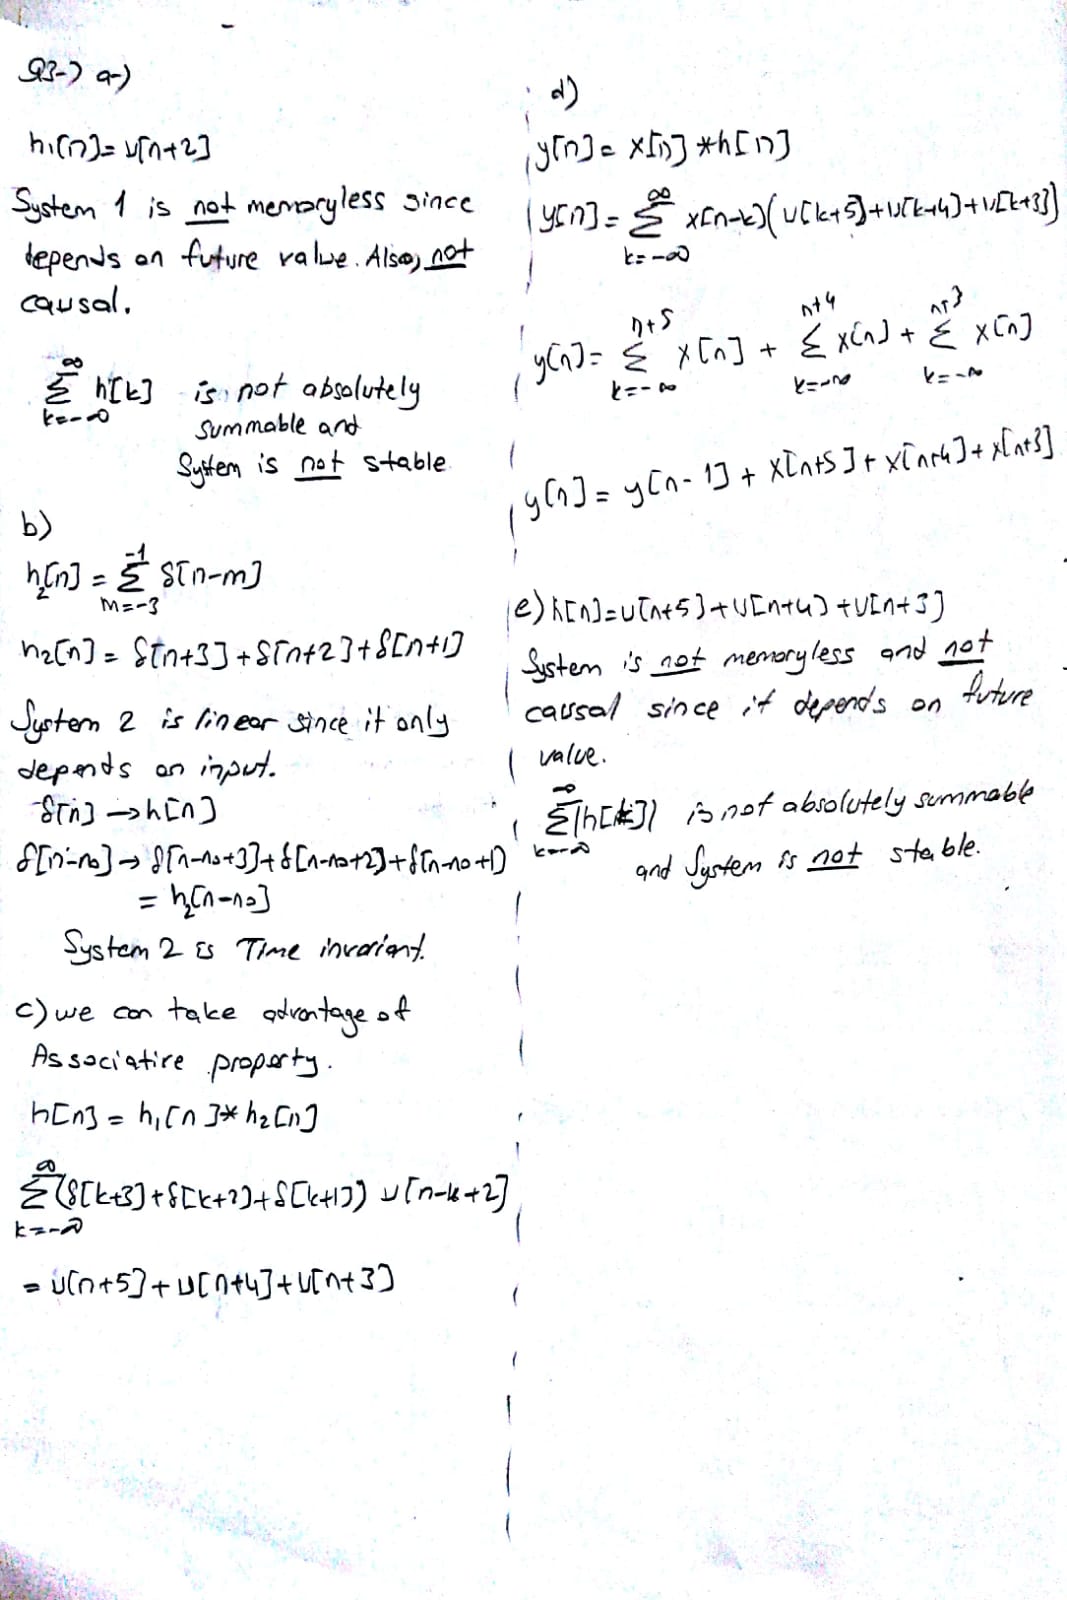 Q3-) a-)
h₁[n]= u[n+2]
System 1 is not memoryless since
depends on future value. Also, not
causal.
∞
Σ h[k] is not absolutely
k=-∞
summable and
System is not stable
b)
h₂[n] = Σ δ[n-m]
-1
m=-3
h₂[n] = δ[n+3]+δ[n+2]+δ[n+1]
System 2 is linear since it only
depends on input.
δ[n] → h[n]
δ[n-n₀] → δ[n-n₀+3]+δ[n-n₀+2]+δ[n-n₀+1)
= h₂[n-n₀]
System 2 is Time invariant.
c) we can take advantage of
Associative property.
h[n] = h₁[n]* h₂[n]
∞
Σ (δ[k+3]+δ[k+2]+δ[k+1]) u[n-k+2]
k=-∞
= u[n+5]+u[n+4]+u[n+3]
d)
y[n] = x[n] *h[n]
∞
y[n] = Σ x[n-k](u[k+5]+u[k+4]+u[k+3])
k=-∞
n+5 n+4 n+3
y[n]= Σ x[n] + Σ x[n] + Σ x[n]
k=-∞ k=-∞ k=-∞
y[n] = y[n-1] + x[n+5]+ x[n+4]+ x[n+3]
e) h[n]=u[n+5]+u[n+4]+u[n+3]
System is not memoryless and not
causal since it depends on future
value.
∞
Σ|h[k]| is not absolutely summable
k=-∞
and System is not stable.